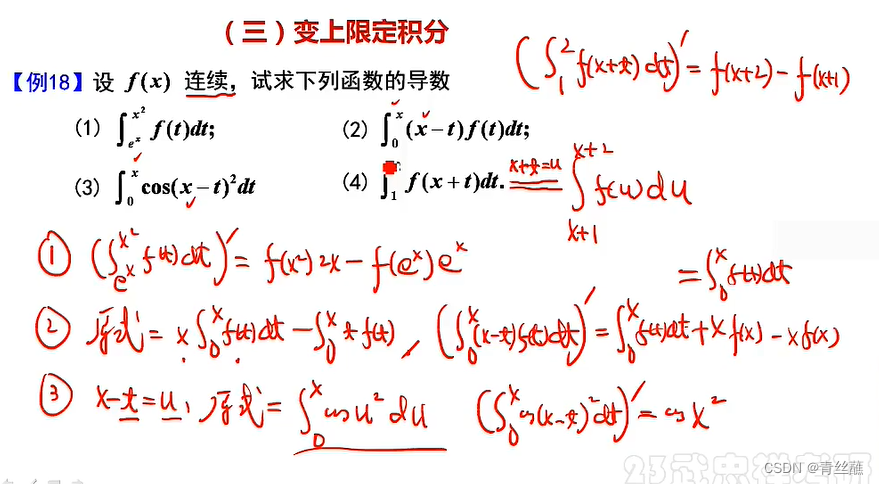 （三）变上限定积分
【例18】设 f(x) 连续，试求下列函数的导数
(∫₁² f(x+t) dt)′ = f(x+2) - f(x+1)
(1) ∫_{eˣ}^{x²} f(t)dt; (2) ∫₀ˣ (x-t)f(t)dt;
(3) ∫₀ˣ cos(x-t)²dt (4) ∫₁ f(x+t)dt. x+t=u ∫_{x+1}^{x+2} f(u)du
① (∫_{eˣ}^{x²} f(t)dt)′ = f(x²)2x - f(eˣ)eˣ
= ∫₀ˣ f(t)dt
② 原式 = x∫₀ˣ f(t)dt - ∫₀ˣ t f(t), (∫₀ˣ (x-t)f(t)dt)′ = ∫₀ˣ f(t)dt + x f(x) - x f(x)
③ x-t=u, 原式 = ∫₀ˣ cos u² du (∫₀ˣ cos(x-t)²dt)′ = cos x²
23武忠祥考研
CSDN @青丝蘸